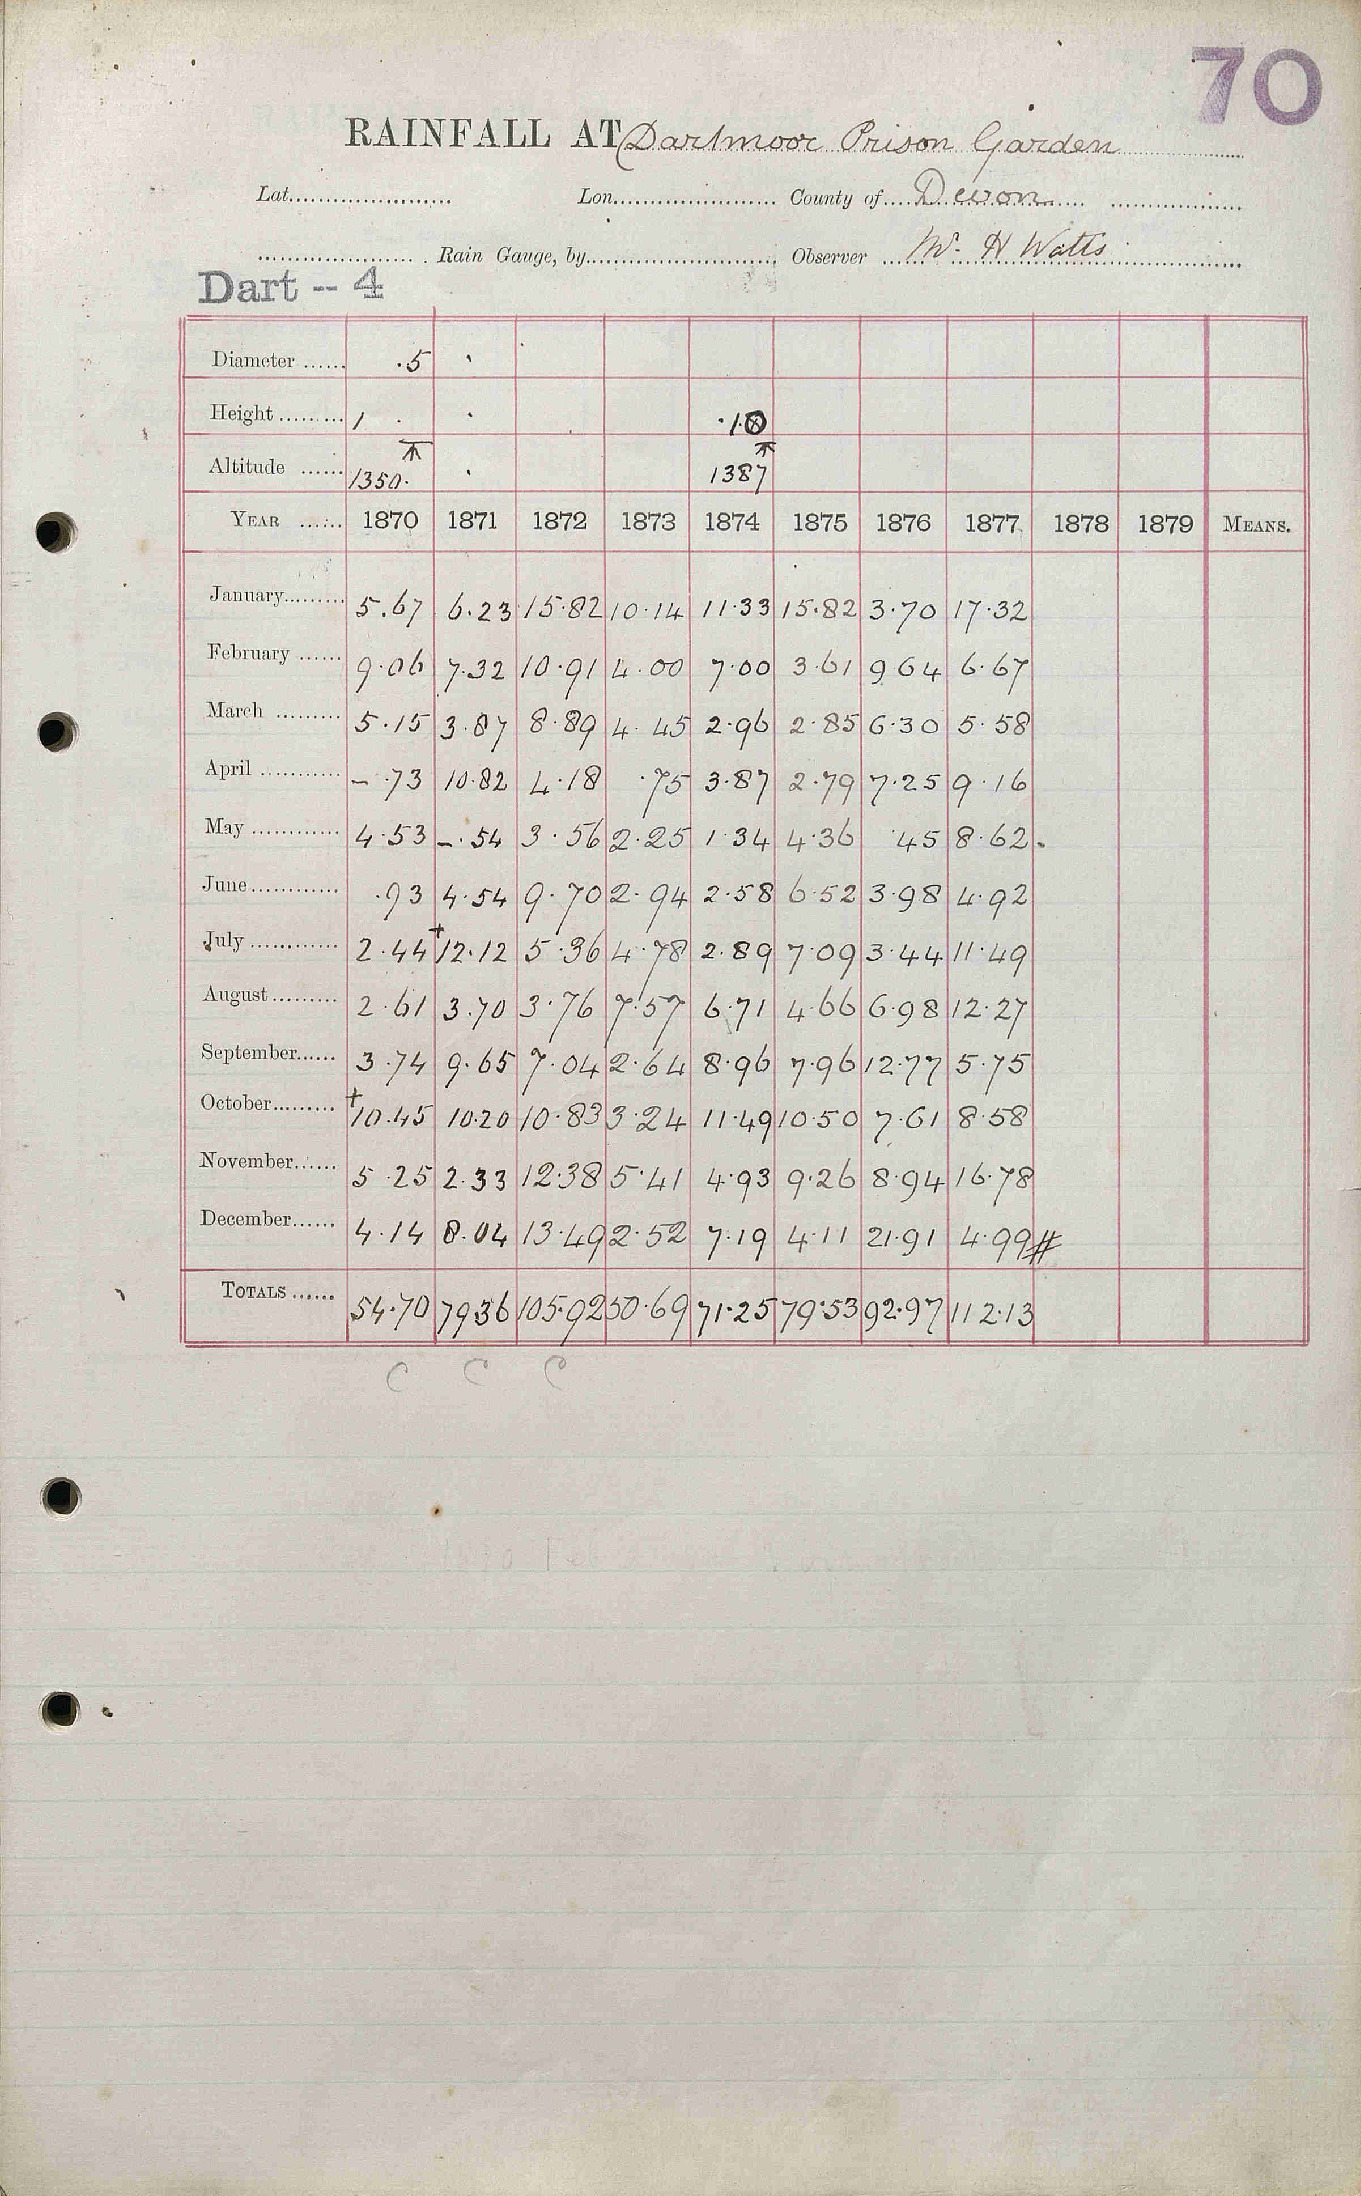 70
RAINFALL AT Dartmoor Prison Garden
Lat. Lon. County of Devon
Rain Gauge, by Observer Mr. H Watts
Dart -- 4
Diameter ...... .5
Height ......... 1 . .10
Altitude ...... 1350. 1387
YEAR ...... 1870 1871 1872 1873 1874 1875 1876 1877 1878 1879 MEANS.
January......... 5.67 6.23 15.82 10.14 11.33 15.82 3.70 17.32
February ...... 9.06 7.32 10.91 4.00 7.00 3.61 9 64 6.67
March ......... 5.15 3.87 8.89 4.45 2.96 2.85 6.30 5.58
April ............ – .73 10.82 4.18 .75 3.87 2.79 7.25 9.16
May ............ 4.53 –.54 3.56 2.25 1 34 4.36 .45 8.62.
June............ .93 4.54 9.70 2.94 2.58 6.52 3.98 4.92
July ............ 2.44 +12.12 5.36 4.78 2.89 7.09 3.44 11.49
August......... 2.61 3.70 3.76 7.57 6.71 4.66 6.98 12.27
September...... 3.74 9.65 7.04 2.64 8.96 7.96 12.77 5.75
October......... +10.45 10.20 10.83 3.24 11.49 10.50 7.61 8.58
November...... 5.25 2.33 12.38 5.41 4.93 9.26 8.94 16.78
December...... 4.14 8.04 13.49 2.52 7.19 4.11 21.91 4.99 #
TOTALS ...... 54.70 7936 105.92 50.69 71.25 79.53 92.97 112.13
C C C